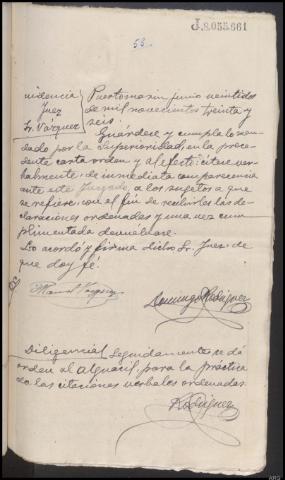 J.8.055.661
53.
videncia Puertomarin junio veintidos
Juez de mil novecientos treinta y
Sr. Vázquez seis.
Guardese y cumpla lo man-
dado por la Superioridad en la prece-
dente carta orden y al efecto citese ver-
balmente de inmediata comparecencia
ante este Juzgado, a los sujetos a que
se refiere, con el fin de recibirles las de-
claraciones ordenadas y una vez cum-
plimentada devuelvase.
Lo acordó y firma dicho Sr. Juez, de
que doy fé.
Manuel Vázquez
Domingo Rodriguez
Diligencia/ Seguidamente se dá
orden al Alguacil, para la práctica
de las citaciones verbales ordenadas.
Rodriguez